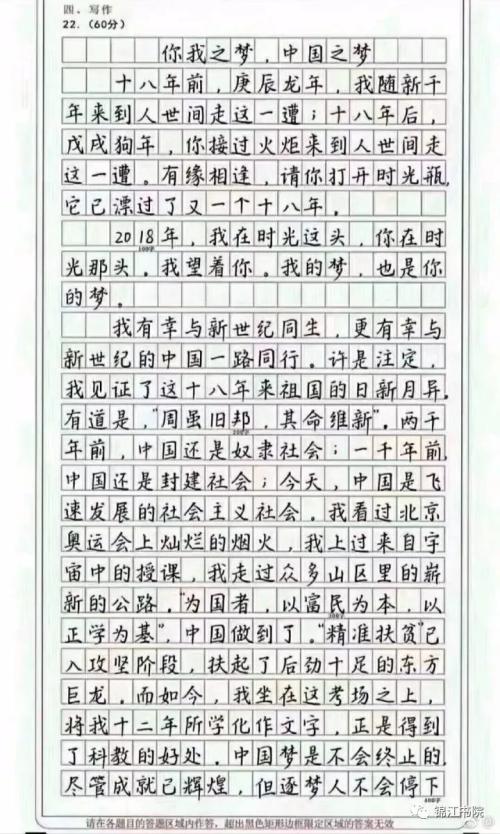 四、写作
22.（60分）
你我之梦，中国之梦
十八年前，庚辰龙年，我随新千
年来到人世间走这一遭；十八年后，
戊戌狗年，你接过火炬来到人世间走
这一遭。有缘相逢，请你打开时光瓶，
它已漂过了又一个十八年。
2018年，我在时光这头，你在时
100字
光那头。我望着你。我的梦，也是你
的梦。
我有幸与新世纪同生，更有幸与
新世纪的中国一路同行。许是注定，
我见证了这十八年来祖国的日新月异。
有道是，“周虽旧邦，其命维新”。两千
200字
年前，中国还是奴隶社会；一千年前，
中国还是封建社会；今天，中国是飞
速发展的社会主义社会。我看过北京
奥运会上灿烂的烟火，我上过来自宇
宙中的授课，我走过众多山区里的崭
新的公路。“为国者，以富民为本，以
300字
正学为基”，中国做到了。“精准扶贫”已
入攻坚阶段，扶起了后劲十足的东方
巨龙。而如今，我坐在这考场之上，
将我十二年所学化作文字，正是得到
了科教的好处。中国梦是不会终止的。
尽管成就已辉煌，但逐梦人不会停下
400字
请在各题目的答题区域内作答，超出黑色矩形边框限定区域的答案无效
锦江书院